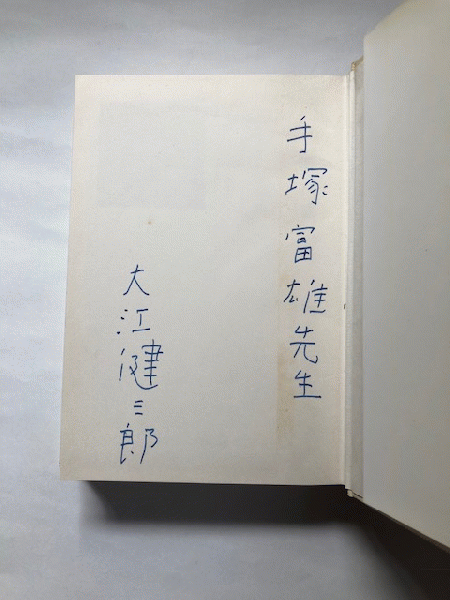 手塚富雄先生
大江健三郎